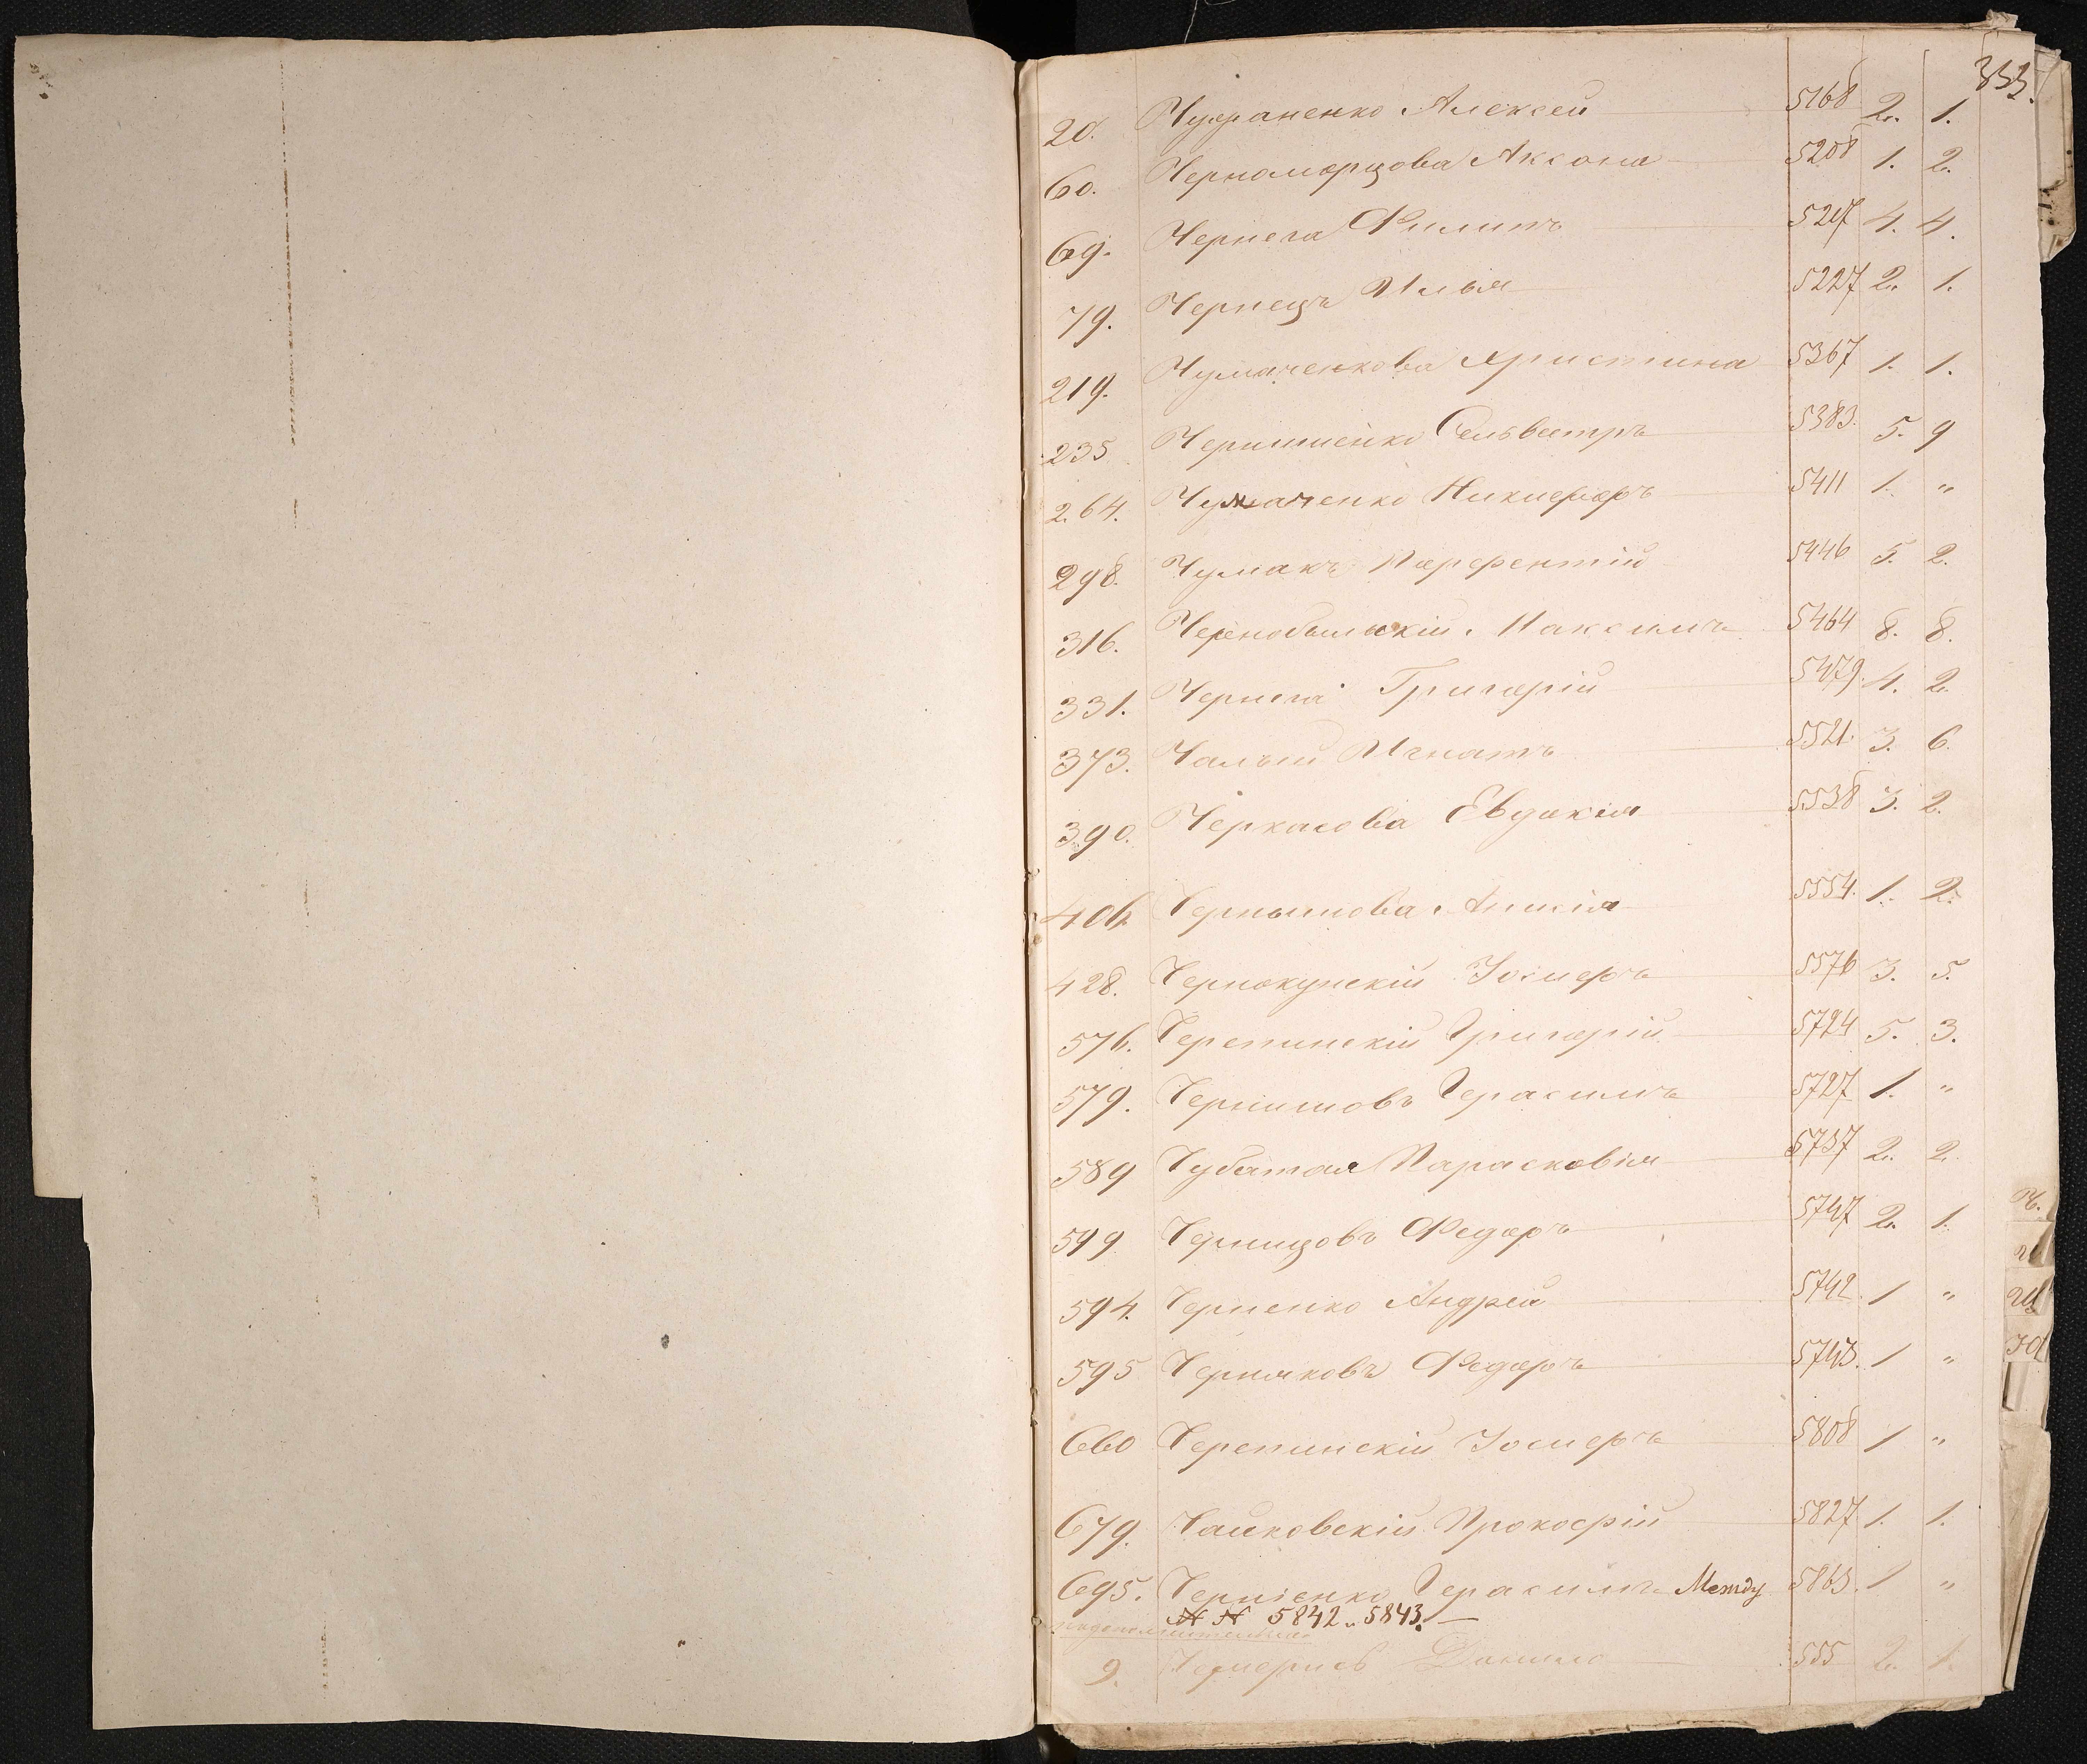 333.
20. Чуфраненко Алексей 5168 2. 1.
60. Черноморцова Аксона 5208 1. 2.
69. Чернега Филипъ 5217 4. 4.
79. Чернецъ Илья 5227 2. 1.
219. Чумаченкова Христина 5367 1. 1.
235 Чернишенко Сельвестръ 5383. 5. 9
264. Чумаченко Никифоръ 5411 1. "
298. Чумакъ Парфентій 5446 5. 2.
316. Чернобыльскій Максимъ 5464 8. 8.
331. Чернега Григорій 5479. 4. 2.
373. Чалый Игнатъ 5521. 3. 6.
390. Черкасова Евдокія 5538 3. 2.
406. Чернышова Анисія 5554. 1. 2.
428. Чернокунскій Іосифъ 5576 3. 5.
576. Черепинскій Григорій 5724 5. 3.
579. Чернишовъ Герасимъ 5727 1. "
589 Чубатая Парасковія 5737 2. 2.
599 Чернцовъ Федоръ 5747 2. 1.
594. Черненко Андрей 5742. 1 "
595 Черняковъ Федоръ 5743. 1 "
660 Черепинскій Іосифъ 5808 1 "
679. Чайковскій Прокофій 5827 1. 1.
695. Черніенко Герасимъ Между 5863. 1 "
N N 5842 " 5843. —
9. Данило 555 2. 1.
Ч.
Щ
Ю